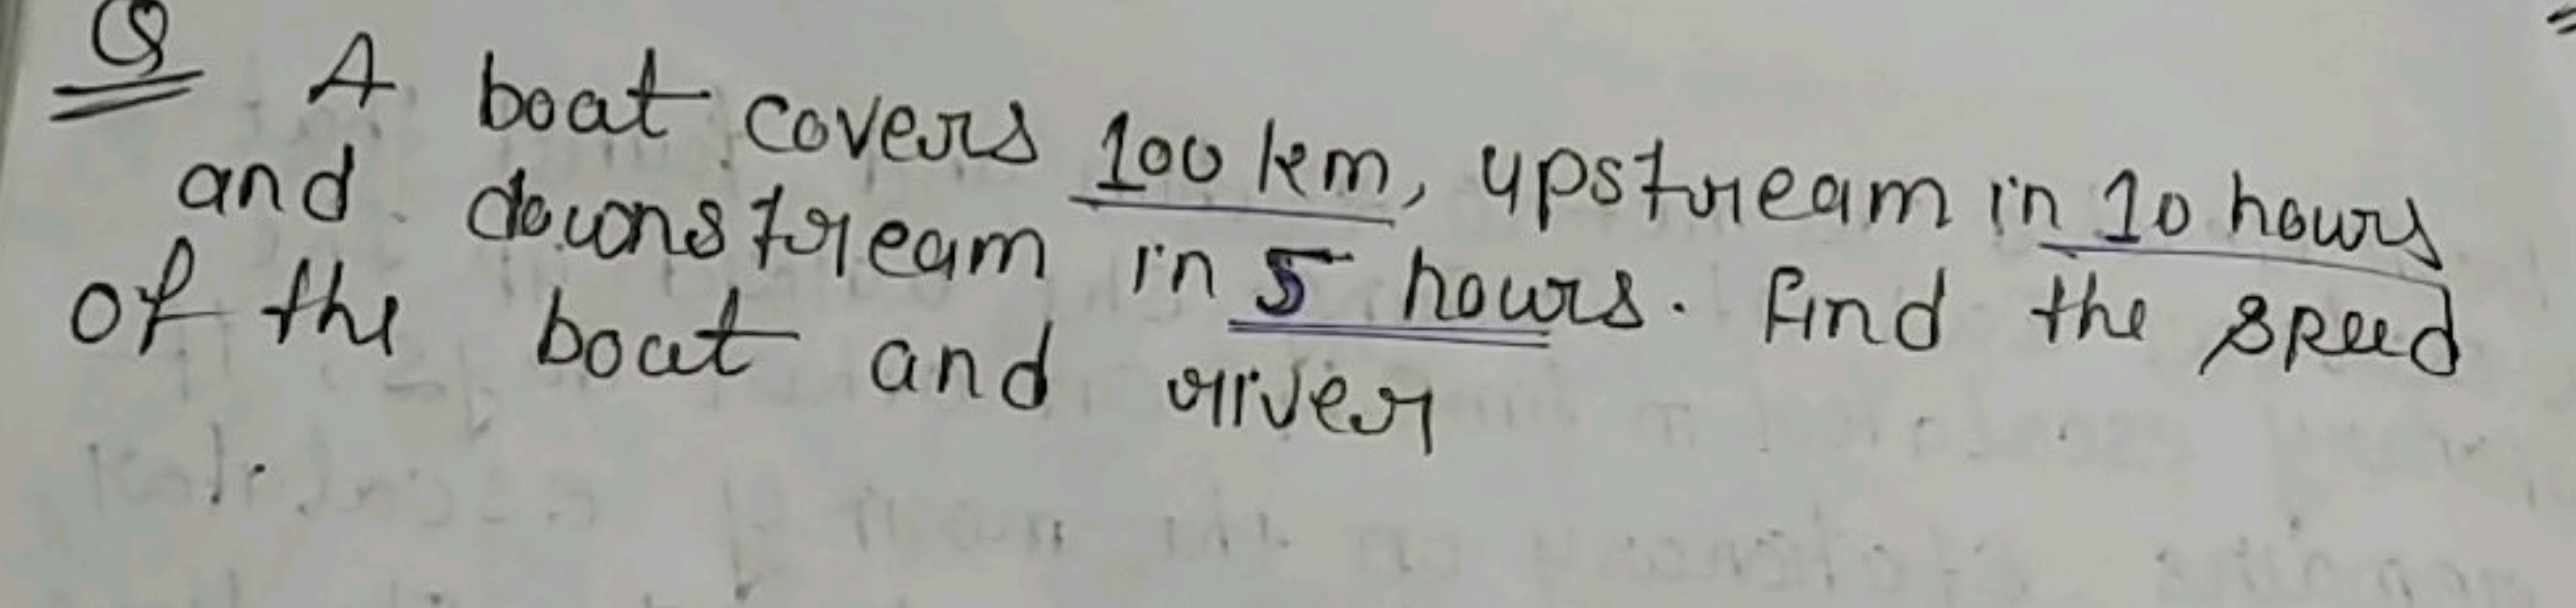 Q A boat covers 100 km, upstream in 10 hours
and downstream in 5 hours. Find the speed
of the boat and river